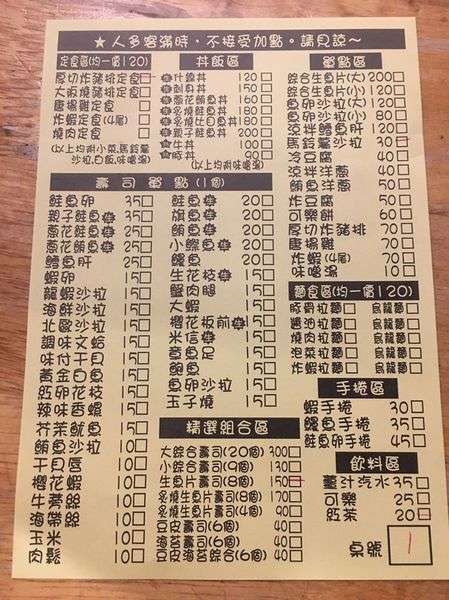 ★人多客滿時,不接受加點。請見諒~
定食區(均一價120)
厚切炸豬排定食
大阪燒豬排定食
唐揚雞定食
炸蝦定食(4尾)
燒肉定食
(以上均附小菜.馬鈴薯沙拉.白飯.味噌湯)
丼飯區
什錦丼 120
刺身丼 150
蔥花鮪魚丼 160
炙燒鮭魚丼 180
炙燒比目魚丼 180
親子鮭魚丼 200
★牛丼 100
★豚丼 90
(以上均附味噌湯)
單點區
綜合生魚片(大) 200
綜合生魚片(小) 120
魚卵沙拉(大) 120
魚卵沙拉(小) 80
涼拌鱈魚肝 120
馬鈴薯沙拉 30
冷豆腐 40
涼拌洋蔥 40
鮪魚洋蔥 50
炸豆腐 50
可樂餅 60
厚切炸豬排 70
唐揚雞 70
炸蝦(4尾) 70
味噌湯 10
壽司單點(1個)
鮭魚卵 35
親子鮭魚 35
蔥花鮭魚 25
蔥花鮪魚 25
鱈魚肝 25
蝦卵 15
龍蝦沙拉 15
海鮮沙拉 15
北歐沙拉 15
調味文蛤 15
味付干貝 15
黃金白魚 15
紅卵花枝 15
辣味香螺 15
芥茉魷魚 15
鮪魚沙拉 10
干貝唇 10
櫻花蝦 10
牛蒡絲 10
海帶絲 10
玉米 10
肉鬆 10
鮭魚 20
旗魚 20
鮪魚 20
小鰹魚 20
鰻魚 20
生花枝 15
蟹肉腿 15
大蝦 15
櫻花板前 15
米信 15
章魚足 15
鯛魚 15
魚卵沙拉 15
玉子燒 15
精選組合區
大綜合壽司(20個) 300
小綜合壽司(9個) 130
生魚片壽司(8個) 150
炙燒生魚片壽司(8個) 170
炙燒生魚片壽司(4個) 90
豆皮壽司(6個) 40
海苔壽司(6個) 40
豆皮海苔綜合(6個) 40
麵食區(均一價120)
豚骨拉麵 烏龍麵
醬油拉麵 烏龍麵
燒肉拉麵 烏龍麵
泡菜拉麵 烏龍麵
炸蝦拉麵 烏龍麵
手捲區
蝦手捲 30
鰻魚手捲 35
鮭魚卵手捲 45
飲料區
薑汁汽水 35
可樂 25
紅茶 20
桌號 1